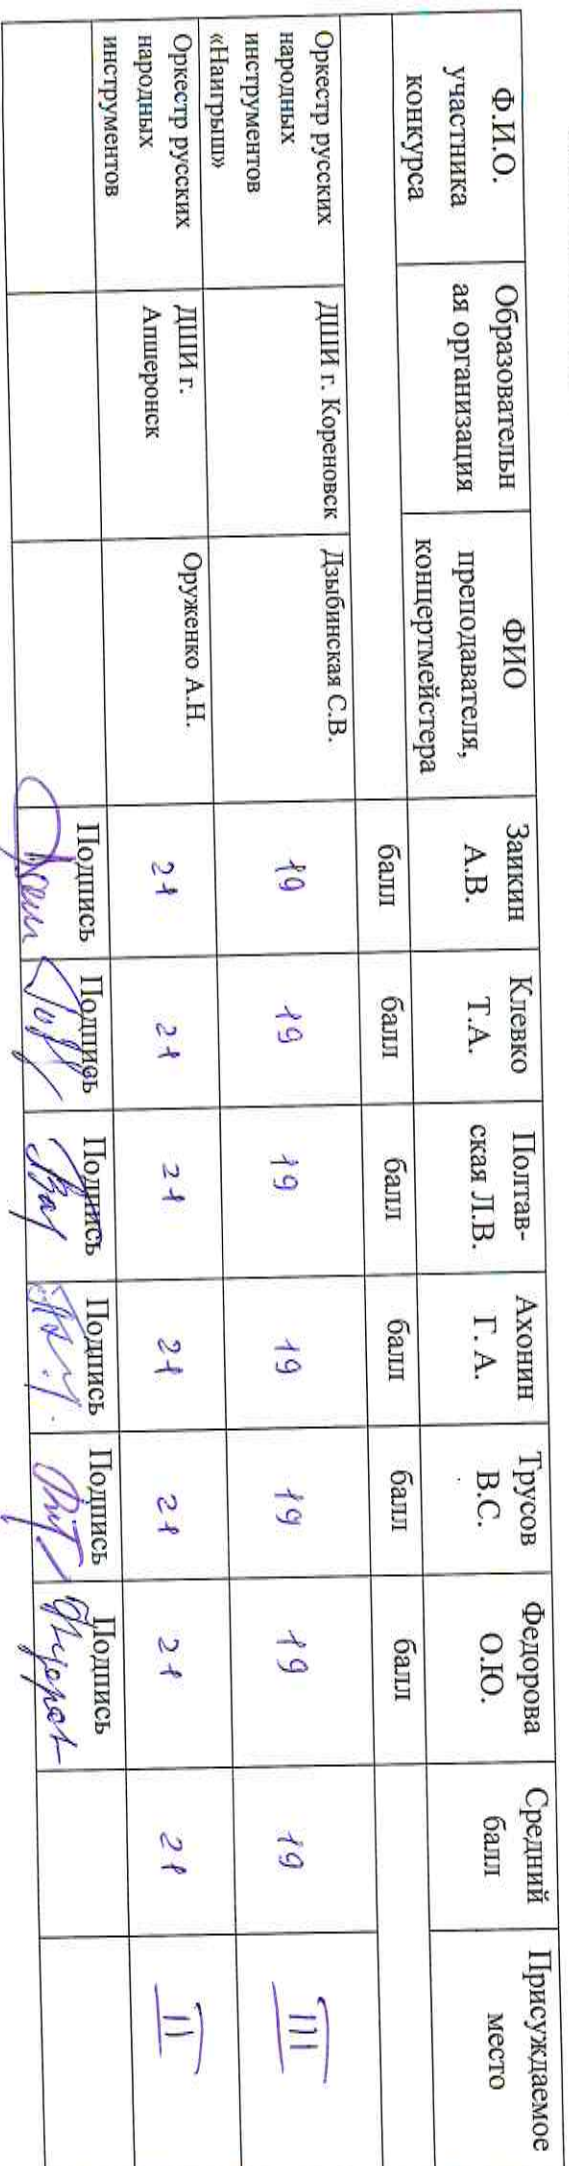 Ф.И.О.
участника
конкурса
Образовательн
ая организация
ФИО
преподавателя,
концертмейстера
Заикин
А.В.
Клевко
Т.А.
Полтав-
ская Л.В.
Ахонин
Г. А.
Трусов
В.С.
Федорова
О.Ю.
Средний
балл
Присуждаемое
место
балл
балл
балл
балл
балл
балл
Оркестр русских
народных
инструментов
«Наигрыш»
ДШИ г. Кореновск
Дзыбинская С.В.
19
19
19
19
19
19
19
III
Оркестр русских
народных
инструментов
ДШИ г.
Апшеронск
Оруженко А.Н.
21
21
21
21
21
21
21
II
Подпись
Подпись
Подпись
Подпись
Подпись
Подпись